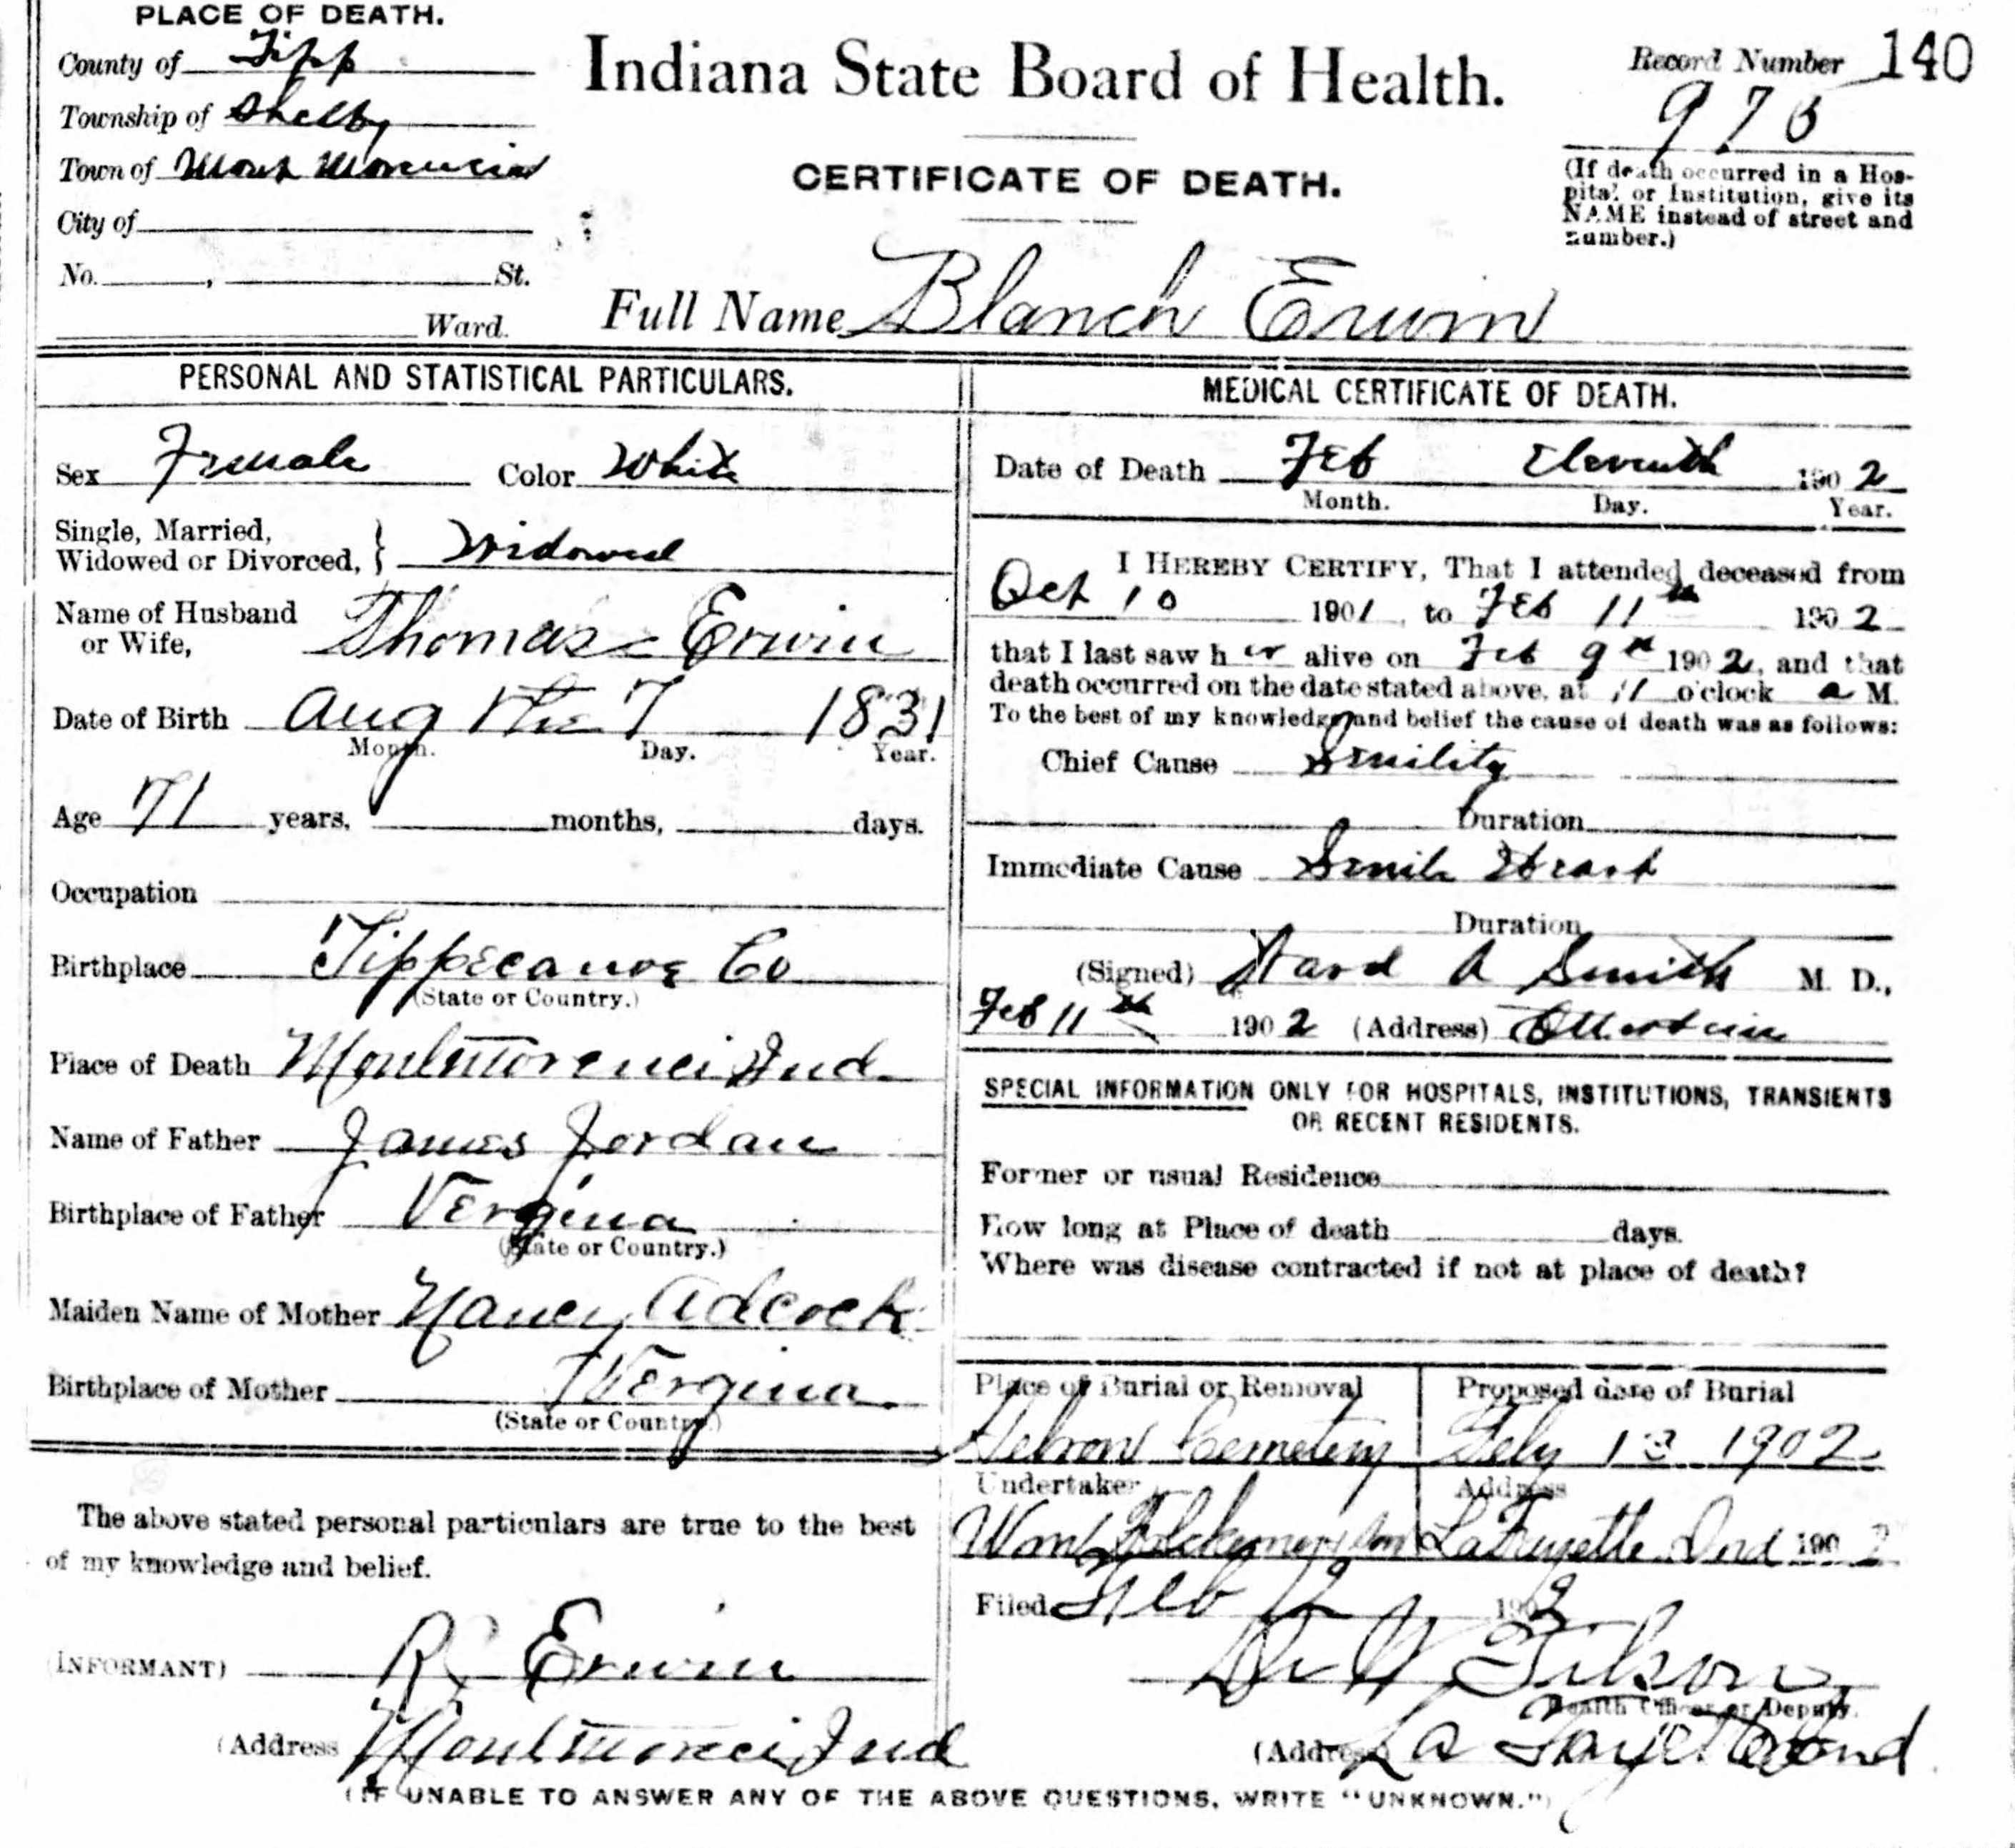 PLACE OF DEATH.
County of Tipp
Township of Shelby
Town of
City of
No. , St.
Ward.
Indiana State Board of Health.
CERTIFICATE OF DEATH.
Record Number 140
976
(If death occurred in a Hos-
pital or Institution, give its
NAME instead of street and
number.)
Full Name Blanch Erwin
PERSONAL AND STATISTICAL PARTICULARS.
Sex Female Color White
Single, Married,
Widowed or Divorced, } Widowed
Name of Husband
or Wife, Thomas Erwin
Date of Birth Aug the 7 1831
Month. Day. Year.
Age 71 years, months, days.
Occupation
Birthplace Tippecanoe Co
(State or Country.)
Place of Death Montmorenci Ind
Name of Father James Jordan
Birthplace of Father Vergina
(State or Country.)
Maiden Name of Mother Nancy Adcock
Birthplace of Mother Vergina
(State or Country.)
The above stated personal particulars are true to the best
of my knowledge and belief.
(INFORMANT) R Erwin
(Address Montmorenci Ind
MEDICAL CERTIFICATE OF DEATH.
Date of Death Feb Eleventh 1902
Month. Day. Year.
I HEREBY CERTIFY, That I attended deceased from
Oct 10 1901, to Feb 11th 1902
that I last saw her alive on Feb 9th 1902, and that
death occurred on the date stated above, at 11 o'clock a M.
To the best of my knowledge and belief the cause of death was as follows:
Chief Cause Senility
Duration
Immediate Cause Senile Heart
Duration
(Signed) A Smith M. D.,
Feb 11th 1902 (Address) Otterbein
SPECIAL INFORMATION ONLY FOR HOSPITALS, INSTITUTIONS, TRANSIENTS
OR RECENT RESIDENTS.
Former or usual Residence
How long at Place of death days.
Where was disease contracted if not at place of death?
Place of Burial or Removal Proposed date of Burial
Hebron Cemetery Feby 13 1902
Undertaker Address
Wm LaFayette Ind 1902
Filed Feb 12 1902
Health Officer or Deputy.
(Address La Fayette Ind
(IF UNABLE TO ANSWER ANY OF THE ABOVE QUESTIONS, WRITE "UNKNOWN.")